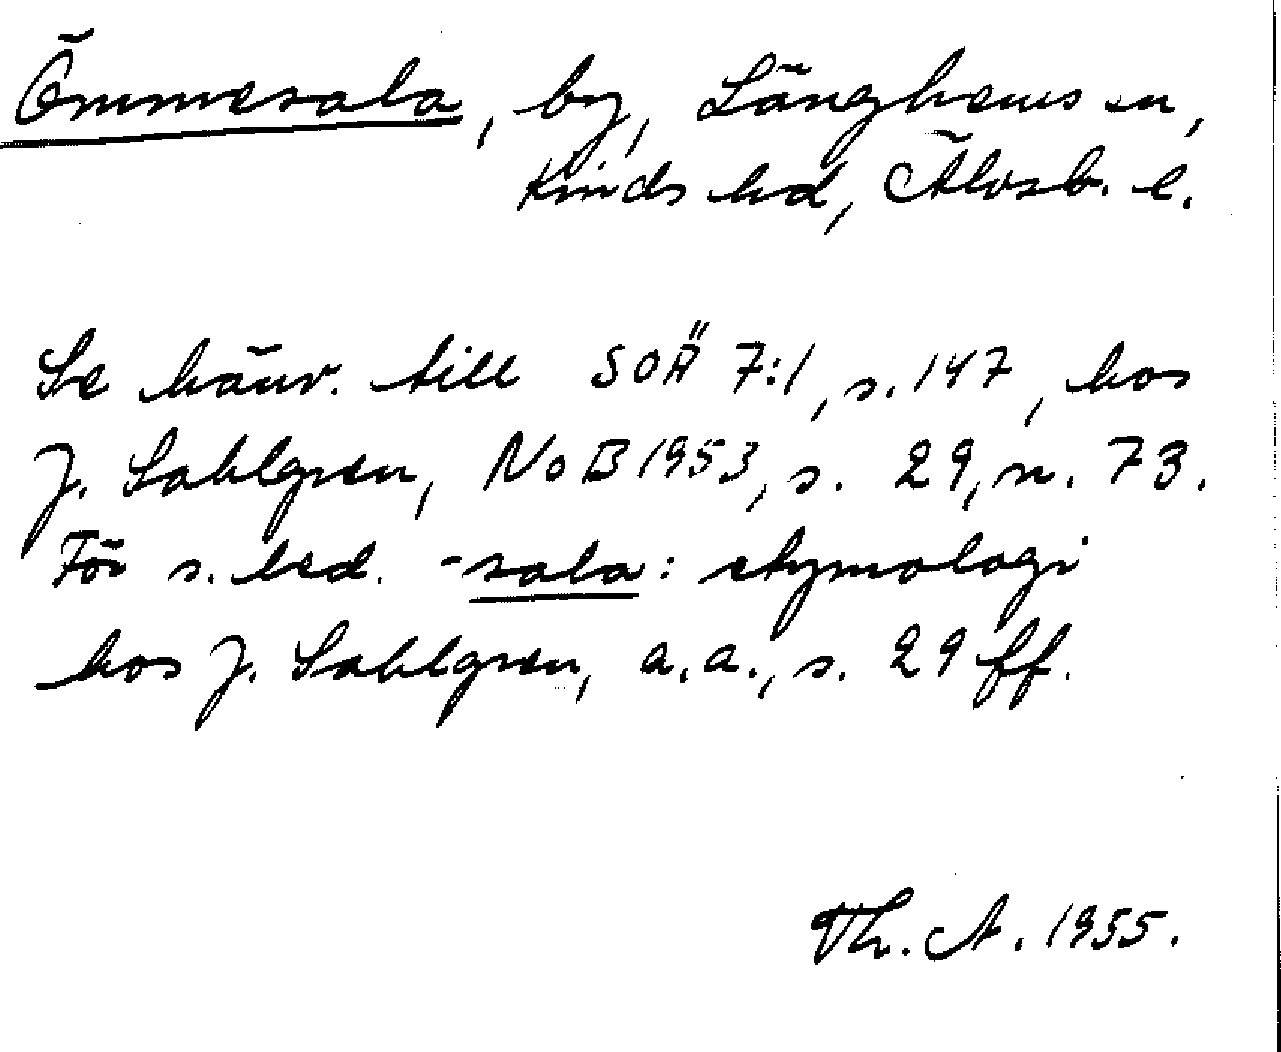 Ömmesala, by, Länghems sn,
Kinds hd, Älvsb. l.
Se hänv. till SOÄ 7:1, s. 147, hos
J. Sahlgren, NoB 1953, s. 29, n. 73.
För s. led. -sala: etymologi
hos J. Sahlgren, a.a., s. 29 ff.
Th. A. 1955.